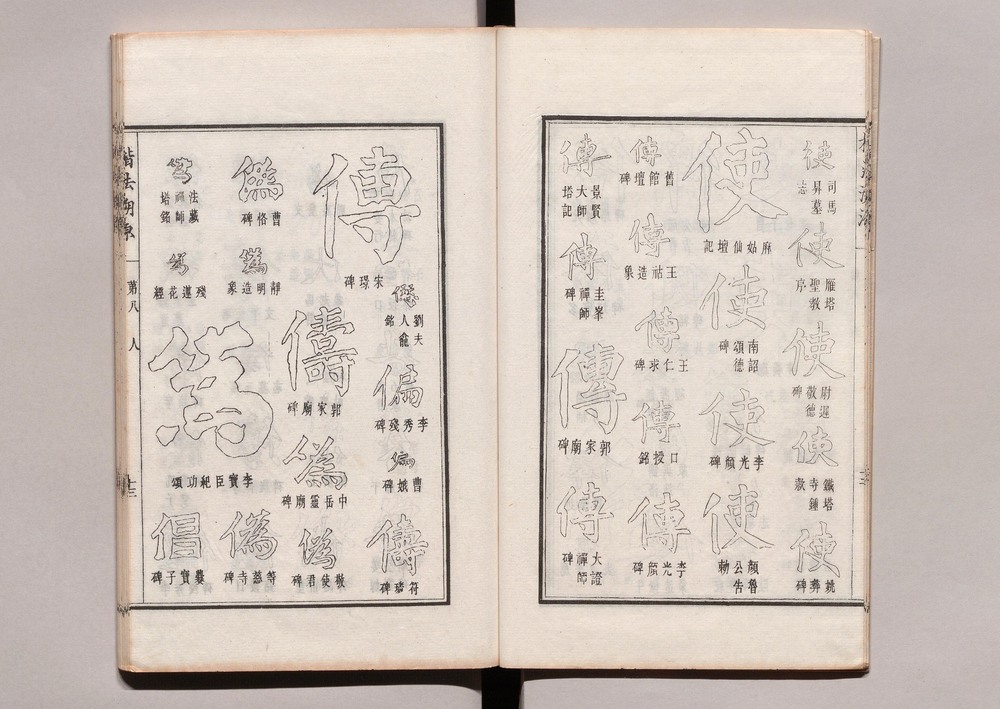 使
司馬昇墓志
使
雁塔聖教序
使
尉遲敬德碑
使
鐵塔寺鐘款
使
姚彝碑
使
麻姑仙壇記
使
南詔德頌碑
使
李光顏碑
使
顏魯公告勅
傳
舊館壇碑
傳
王祜造象
傳
王仁求碑
傳
口授銘
傳
李光顏碑
傳
景賢大師塔記
傳
圭峯禪師碑
傳
郭家廟碑
傳
大證禪師碑
傳
宋璟碑
劉夫人龕銘
偏
李秀殘碑
偏
曹娥碑
儔
符璘碑
儔
郭家廟碑
僞
中岳靈廟碑
僞
敬使君碑
僞
曹恪碑
僞
靜明造象
僞
法藏禪師塔銘
殘蓮花經
李寶臣紀功頌
僞
等慈寺碑
倡
爨寶子碑
楷法溯源
第八
人
十三